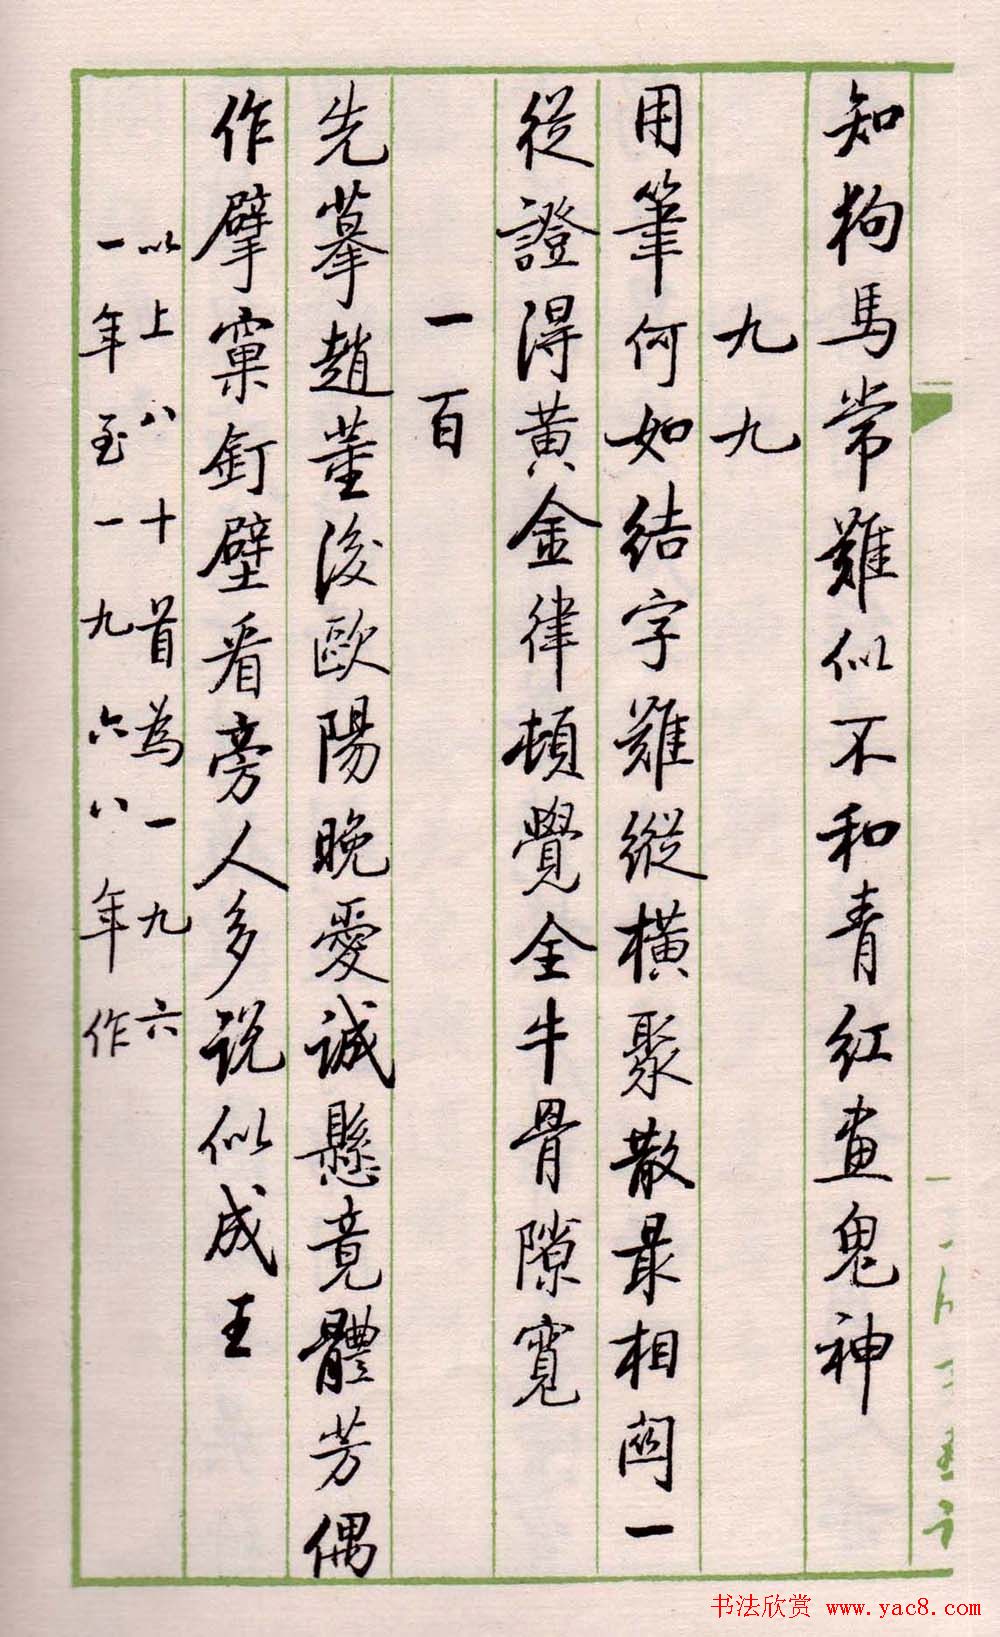 知狗馬常難似不和青紅畫鬼神
九九
用筆何如結字難縱橫聚散最相關一
從證得黃金律頓覺全牛骨隙寬
一百
先摹趙董後歐陽晚愛誠懸竟體芳偶
作擘窠釘壁看旁人多說似成王
以上八十首為一九六
一年至一九六八年作
书法欣赏 www.yac8.com